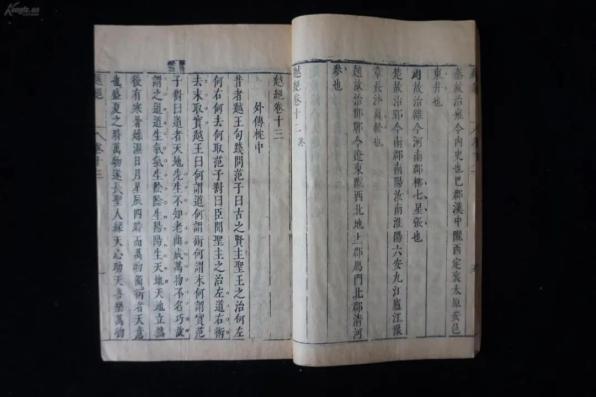 秦故治雍今內史也巴郡漢中隴西定襄太原安邑
東井也
周故治雒今河南郡柳七星張也
楚故治郢今南郡南陽汝南淮陽六安九江廬江豫
章長沙翼軫也
趙故治邯鄲今遼東隴西北地上郡鴈門北郡清河
參也
越絕卷十二
越絕卷十三
外傳枕中
昔者越王句踐問范子曰古之賢主聖王之治何左
何右何去何取范子對曰臣聞聖主之治左道右術
去末取實越王曰何謂道何謂術何謂末何謂實范
子對曰道者天地先生不知老曲成萬物不名巧故
謂之道道生氣氣生陰陰生陽陽生天地天地立然
後有寒暑燥濕日月星辰四時而萬物備術者天意
也盛夏之時萬物遂長聖人緣天心助天喜樂萬物
越絕
卷十三
Kongfz.cn